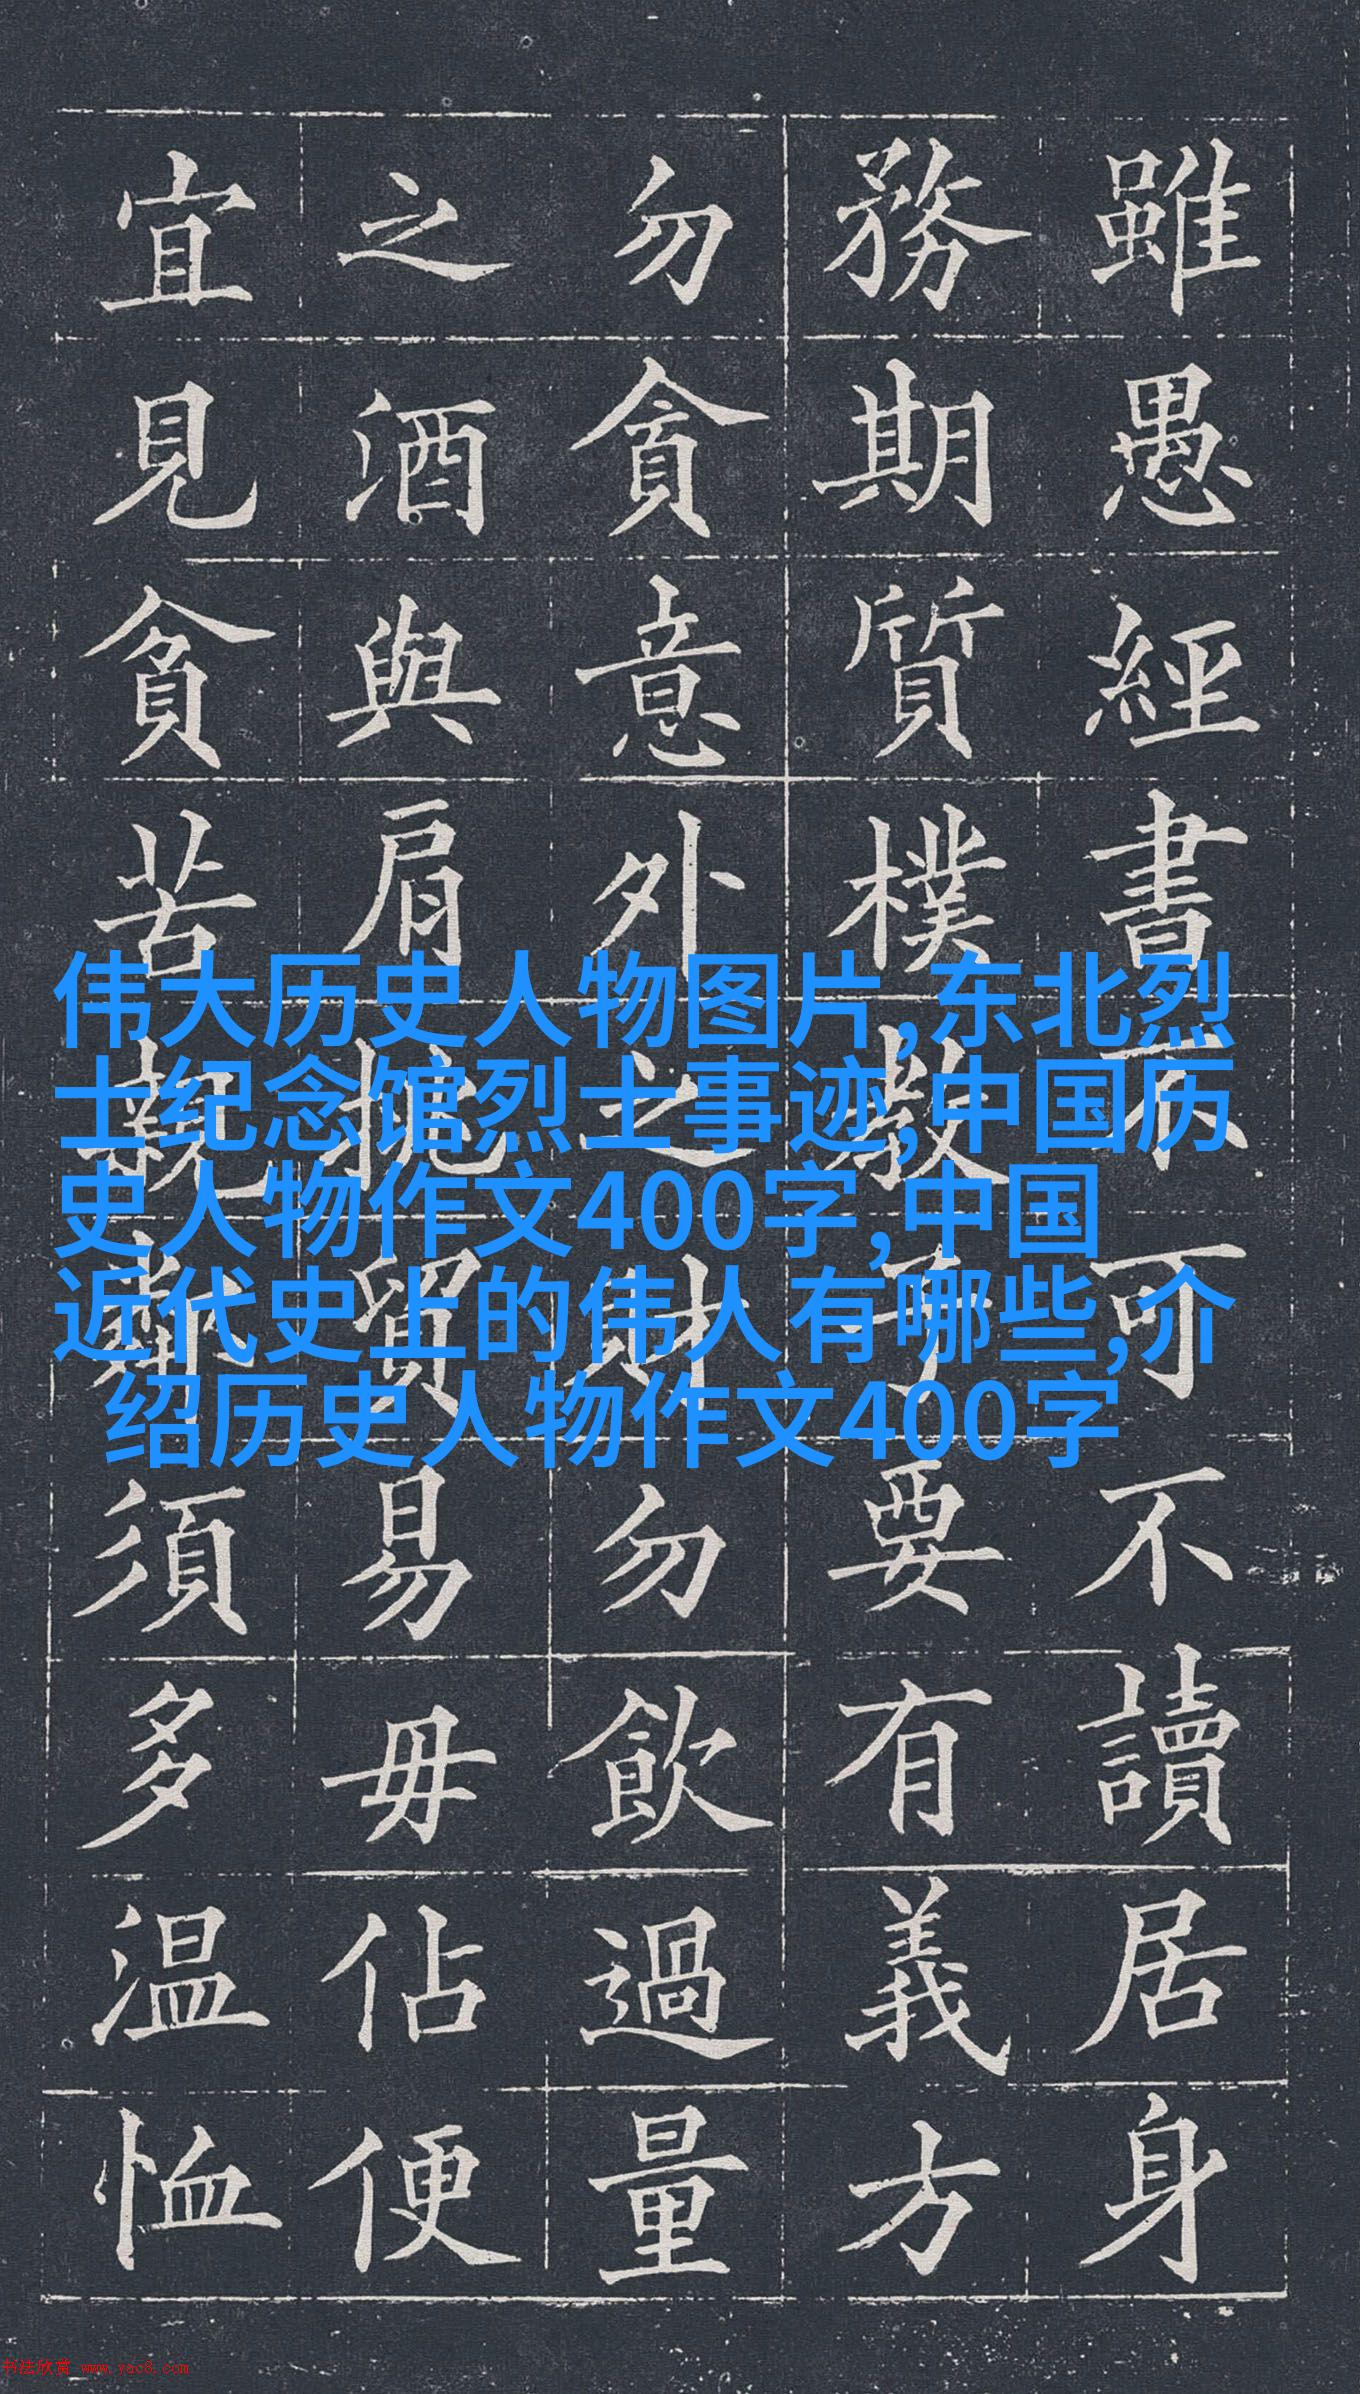 雖愚經書不可不讀居身
務期質樸教子要有義方
勿貪意外之財勿飲過量
之酒與肩挑貿易毋佔便
宜見貧苦親鄰須多温恤
伟大历史人物图片,东北烈
士纪念馆烈士事迹,中国历
史人物作文400字,中国
近代史上的伟人有哪些,介
绍历史人物作文400字
书法欣赏 www.yac8.com